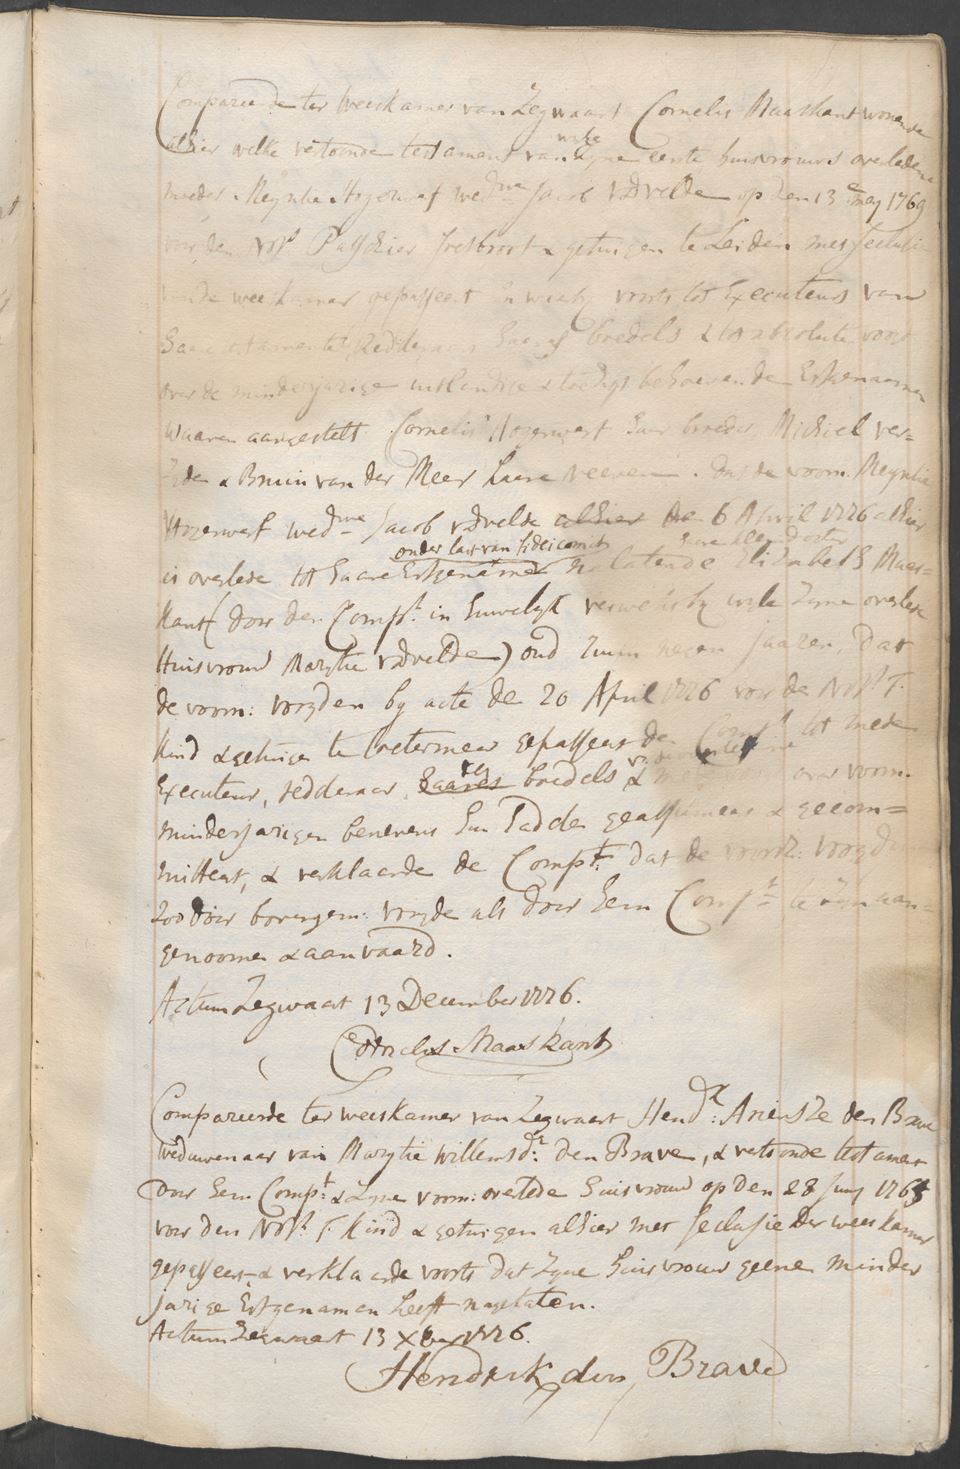 Compareerde ter weeskamer van Zegwaart Cornelis Maaskant wonende
alhier welke vertoonde testament van wyle zyne eerste huisvrouws overledene
moeder Meyntie Hogerwerf wed:we Jacob vdvelde op den 13e mey 1769
voor den Nots Passchier & getuigen te Leiden met seclusie
van de weeskamer gepasseert en waarby voorts tot Executeurs van
haare testamente Redderaars haares boedels & tot absolute voogd
over de minderjarige uitlandige & toesigt behoevende Erfgenaamen
waaren aangestelt Cornelis Hogerwerf haar broeder Michiel ver=
& Bruin van der Meer haare neeven. dat de voorn. Meyntie
Hogerwerf wed:we Jacob vdvelde alhier de 6 April 1776 alhier
onder last van fideicomis haare kleindogter
is overlede tot haare Erfgenamen nalatende Elizabeth Maas=
kant (door den Compt in huwelyk verwekt by wyle zyne overlede
Huisvrouw Marytie vdvelde) oud ruim negen jaaren, dat
de voorn: voogden by acte de 20 April 1776 voor de Nots T.
Kind & getuige te Soetermeer gepasseert den Compt tot mede
Executeur, redderaar, haares boedels & mede voogd over voorn.
minderjarigen benevens hun hadden geassumeert & gecom=
mitteert, & verklaarde de Compt dat de voorsz: voogdy
zoo door bovengem: voogde als door hem Compt te zyn aan=
genoomen & aanvaard.
Actum Zegwaart 13 December 1776.
Cornelis Maaskant
Compareerde ter weeskamer van Zegwaart Hend:k Ariensze den Brave
weduwenaar van Marytie Willemsd:r den Brave, & vertoonde testament
door hem Compt & zyne voorn: overlede huisvrouw op den 28 Juny 1765
voor den Nots T. Kind & getuigen alhier met seclusie der weeskamer
gepasseert & verklaarde voorts dat zyne huisvrouw geene minder
jarige Erfgenamen heeft nagelaten.
Actum Zegwaart 13 Xber 1776.
Hendrik den Brave